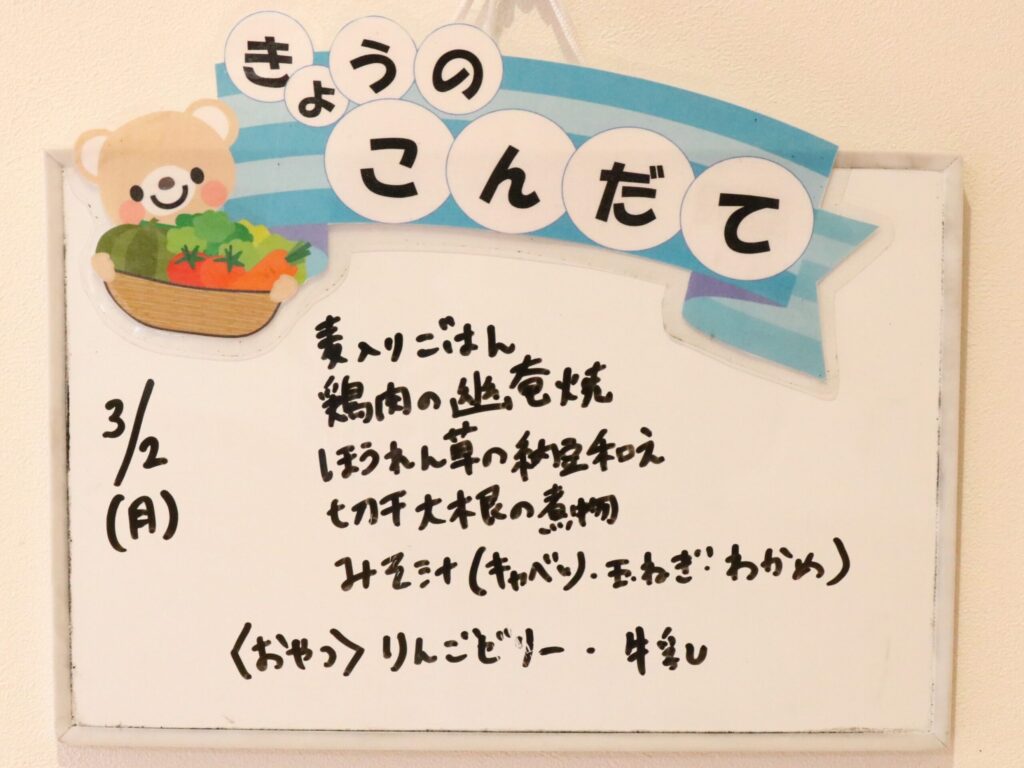 きょうの
こんだて
3/2
(月)
麦入りごはん
鶏肉の幽庵焼
ほうれん草の納豆和え
切干大根の煮物
みそ汁(キャベツ・玉ねぎ・わかめ)
〈おやつ〉りんごゼリー・牛乳